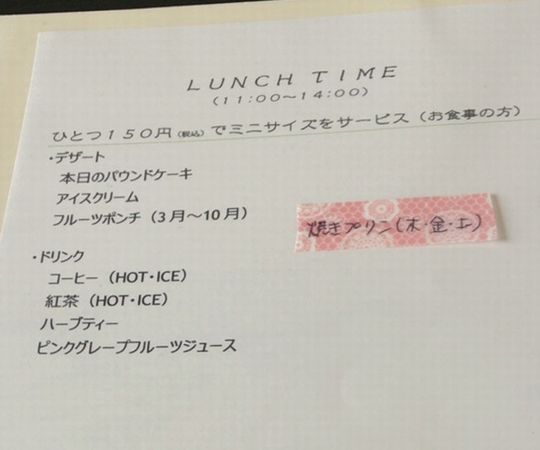 LUNCH TIME
(11:00～14:00)
ひとつ150円(税込)でミニサイズをサービス(お食事の方)
・デザート
本日のパウンドケーキ
アイスクリーム
フルーツポンチ(3月～10月)
焼きプリン(木・金・土)
・ドリンク
コーヒー(HOT・ICE)
紅茶(HOT・ICE)
ハーブティー
ピンクグレープフルーツジュース